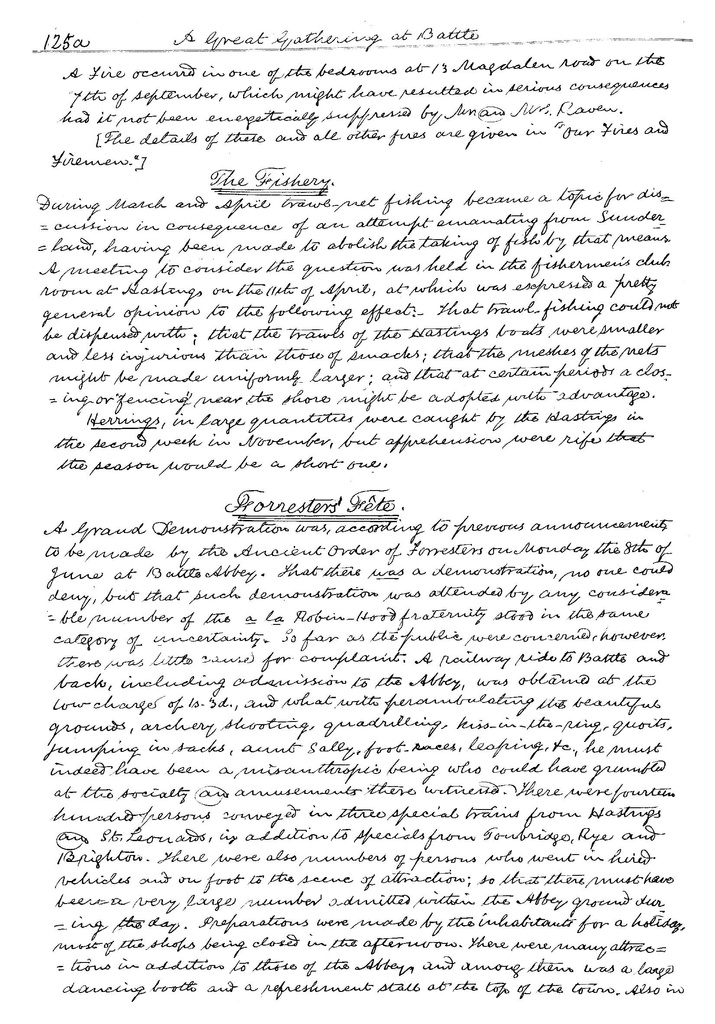 125a A Great Gathering at Battle
A Fire occured in one of the bedrooms at 13 Magdalen road on the
7th of september, which might have resulted in serious consequences
had it not been energetically suppressed by Mr. and Mrs. Raven.
[The details of these and all other fires are given in "Our Fires and
Firemen."]
The Fishery.
During March and April trawl-net fishing became a topic for dis=
=cussion in consequence of an attempt emanating from Sunder
=land, having been made to abolish the taking of fish by that means.
A meeting to consider the question was held in the fishermen's club
room at Hastings on the 11th of April, at which was expressed a pretty
general opinion to the following effect:- That trawl-fishing could not
be dispensed with; that the trawls of the Hastings boats were smaller
and less injurious than those of smacks; that the meshes of the nets
might be made uniformly larger; and that at certain periods a clos=
=ing or 'fencing' near the shore might be adopted with advantage.
Herrings, in large quantities were caught by the Hastings in
the second week in November, but apprehension were rife that
the season would be a short one.
Forresters' Fête.
A Grand Demonstration was, according to previous announcements,
to be made by the Ancient Order of Forresters on Monday the 8th of
June at Battle Abbey. That there was a demonstration, no one could
deny, but that such demonstration was attended by any considera
=ble number of the a la Robin-Hood fraternity stood in the same
category of uncertainty. So far as the public were concerned, however,
there was little cause for complaint. A railway ride to Battle and
back, including admission to the Abbey, was obtained at the
low charge of 1s-3d., and what with perambulating the beautiful
grounds, archery shooting, quadrilling, kiss-in-the-ring, quoits,
jumping in sacks, aunt Sally, foot-races, leaping, &c, he must
indeed have been a misanthropic being who could have grumbled
at the socialty an amusements there witnessed. There were fourteen
hundred persons conveyed in three special trains from Hastings
an St. Leonards, in addition to specials from Tonbridge, Rye and
Brighton. There were also numbers of persons who went in hired
vehicles and on foot to the scene of attraction; so that there must have
been a very large number admitted within the Abbey ground dur
=ing the day. Preparations were made by the inhabitants for a holiday,
most of the shops being closed in the afternoon. There were many attrac=
=tions in addition to those of the Abbey, and among them was a large
dancing booth and a refreshment stall at the top of the town. Also in